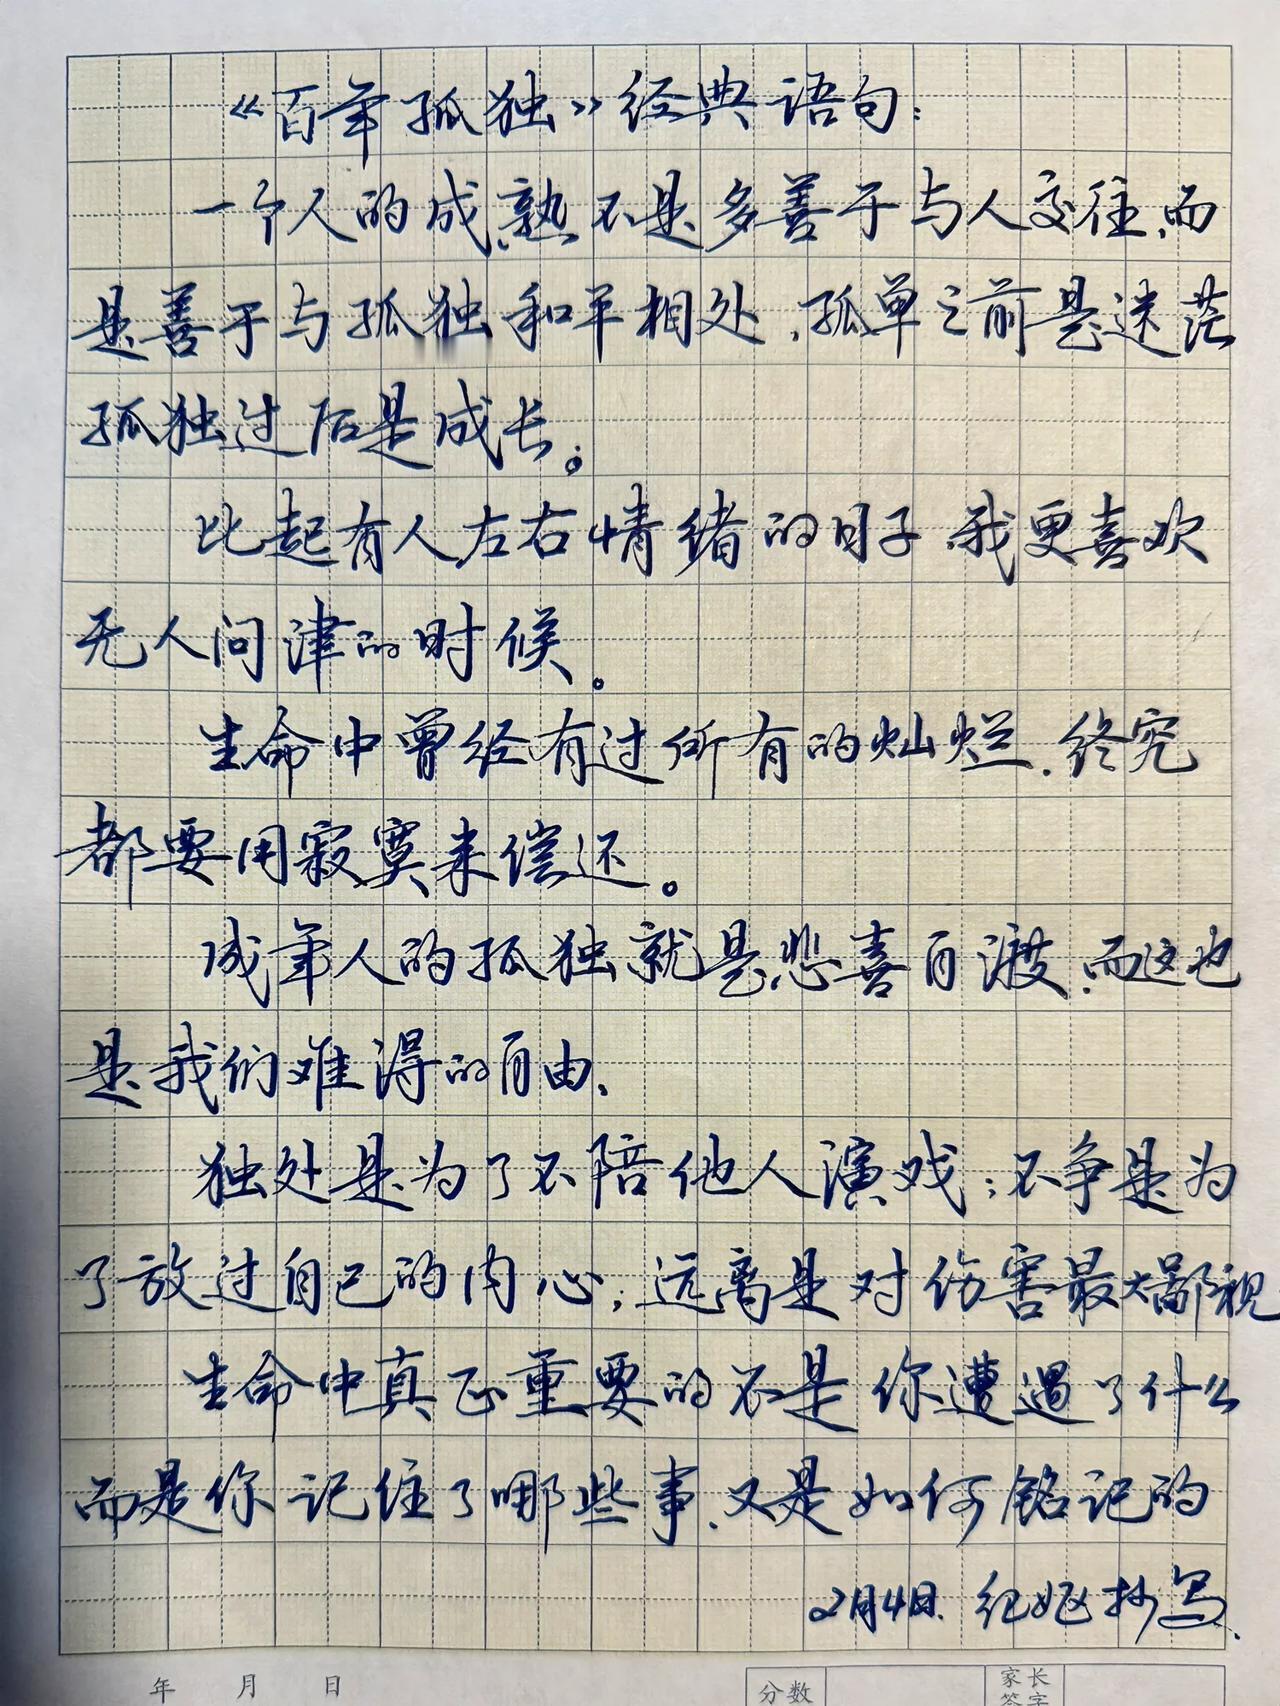 《百年孤独》经典语句：
一个人的成熟不是多善于与人交往，而
是善于与孤独和平相处，孤单之前是迷茫
孤独过后是成长。
比起有人左右情绪的日子，我更喜欢
无人问津的时候。
生命中曾经有过所有的灿烂，终究
都要用寂寞来偿还。
成年人的孤独就是悲喜自渡，而这也
是我们难得的自由、
独处是为了不陪他人演戏；不争是为
了放过自己的内心；远离是对伤害最大鄙视
生命中真正重要的不是你遭遇了什么
而是你记住了哪些事，又是如何铭记的
2月4日、红妪抄写、
年 月 日 分数 家长
签字